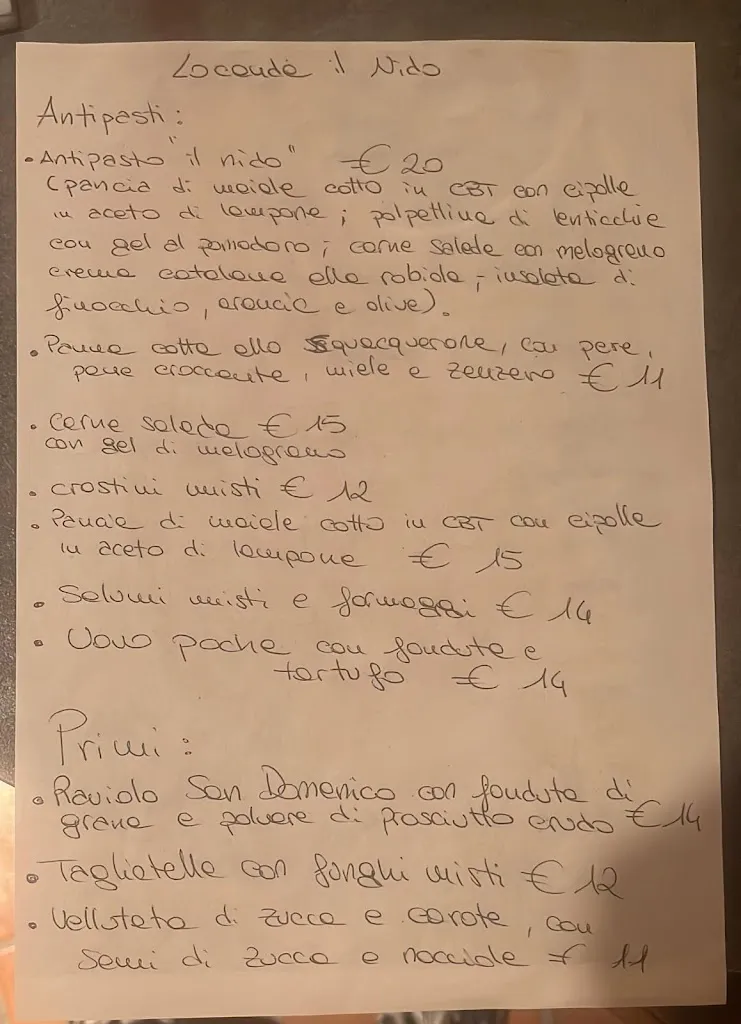 Locanda il Nido
Antipasti:
• Antipasto "il nido" € 20
(pancia di maiale cotto in CBT con cipolle
in aceto di lampone; polpettina di lenticchie
con gel al pomodoro; carne salada con melograno
crema catalana alla robiola; insalata di
finocchio, arancia e olive).
• Panna cotta allo squacquerone, con pere,
pane croccante, miele e zenzero € 11
• Carne salada € 15
con gel di melograno
• crostini misti € 12
• Pancia di maiale cotto in CBT con cipolle
in aceto di lampone € 15
• Salumi misti e formaggi € 14
• Uovo poche con fonduta e
tartufo € 14
Primi:
• Raviolo San Domenico con fonduta di
grana e polvere di prosciutto crudo € 14
• Tagliatelle con funghi misti € 12
• Vellutata di zucca e carote, con
semi di zucca e nocciole € 11